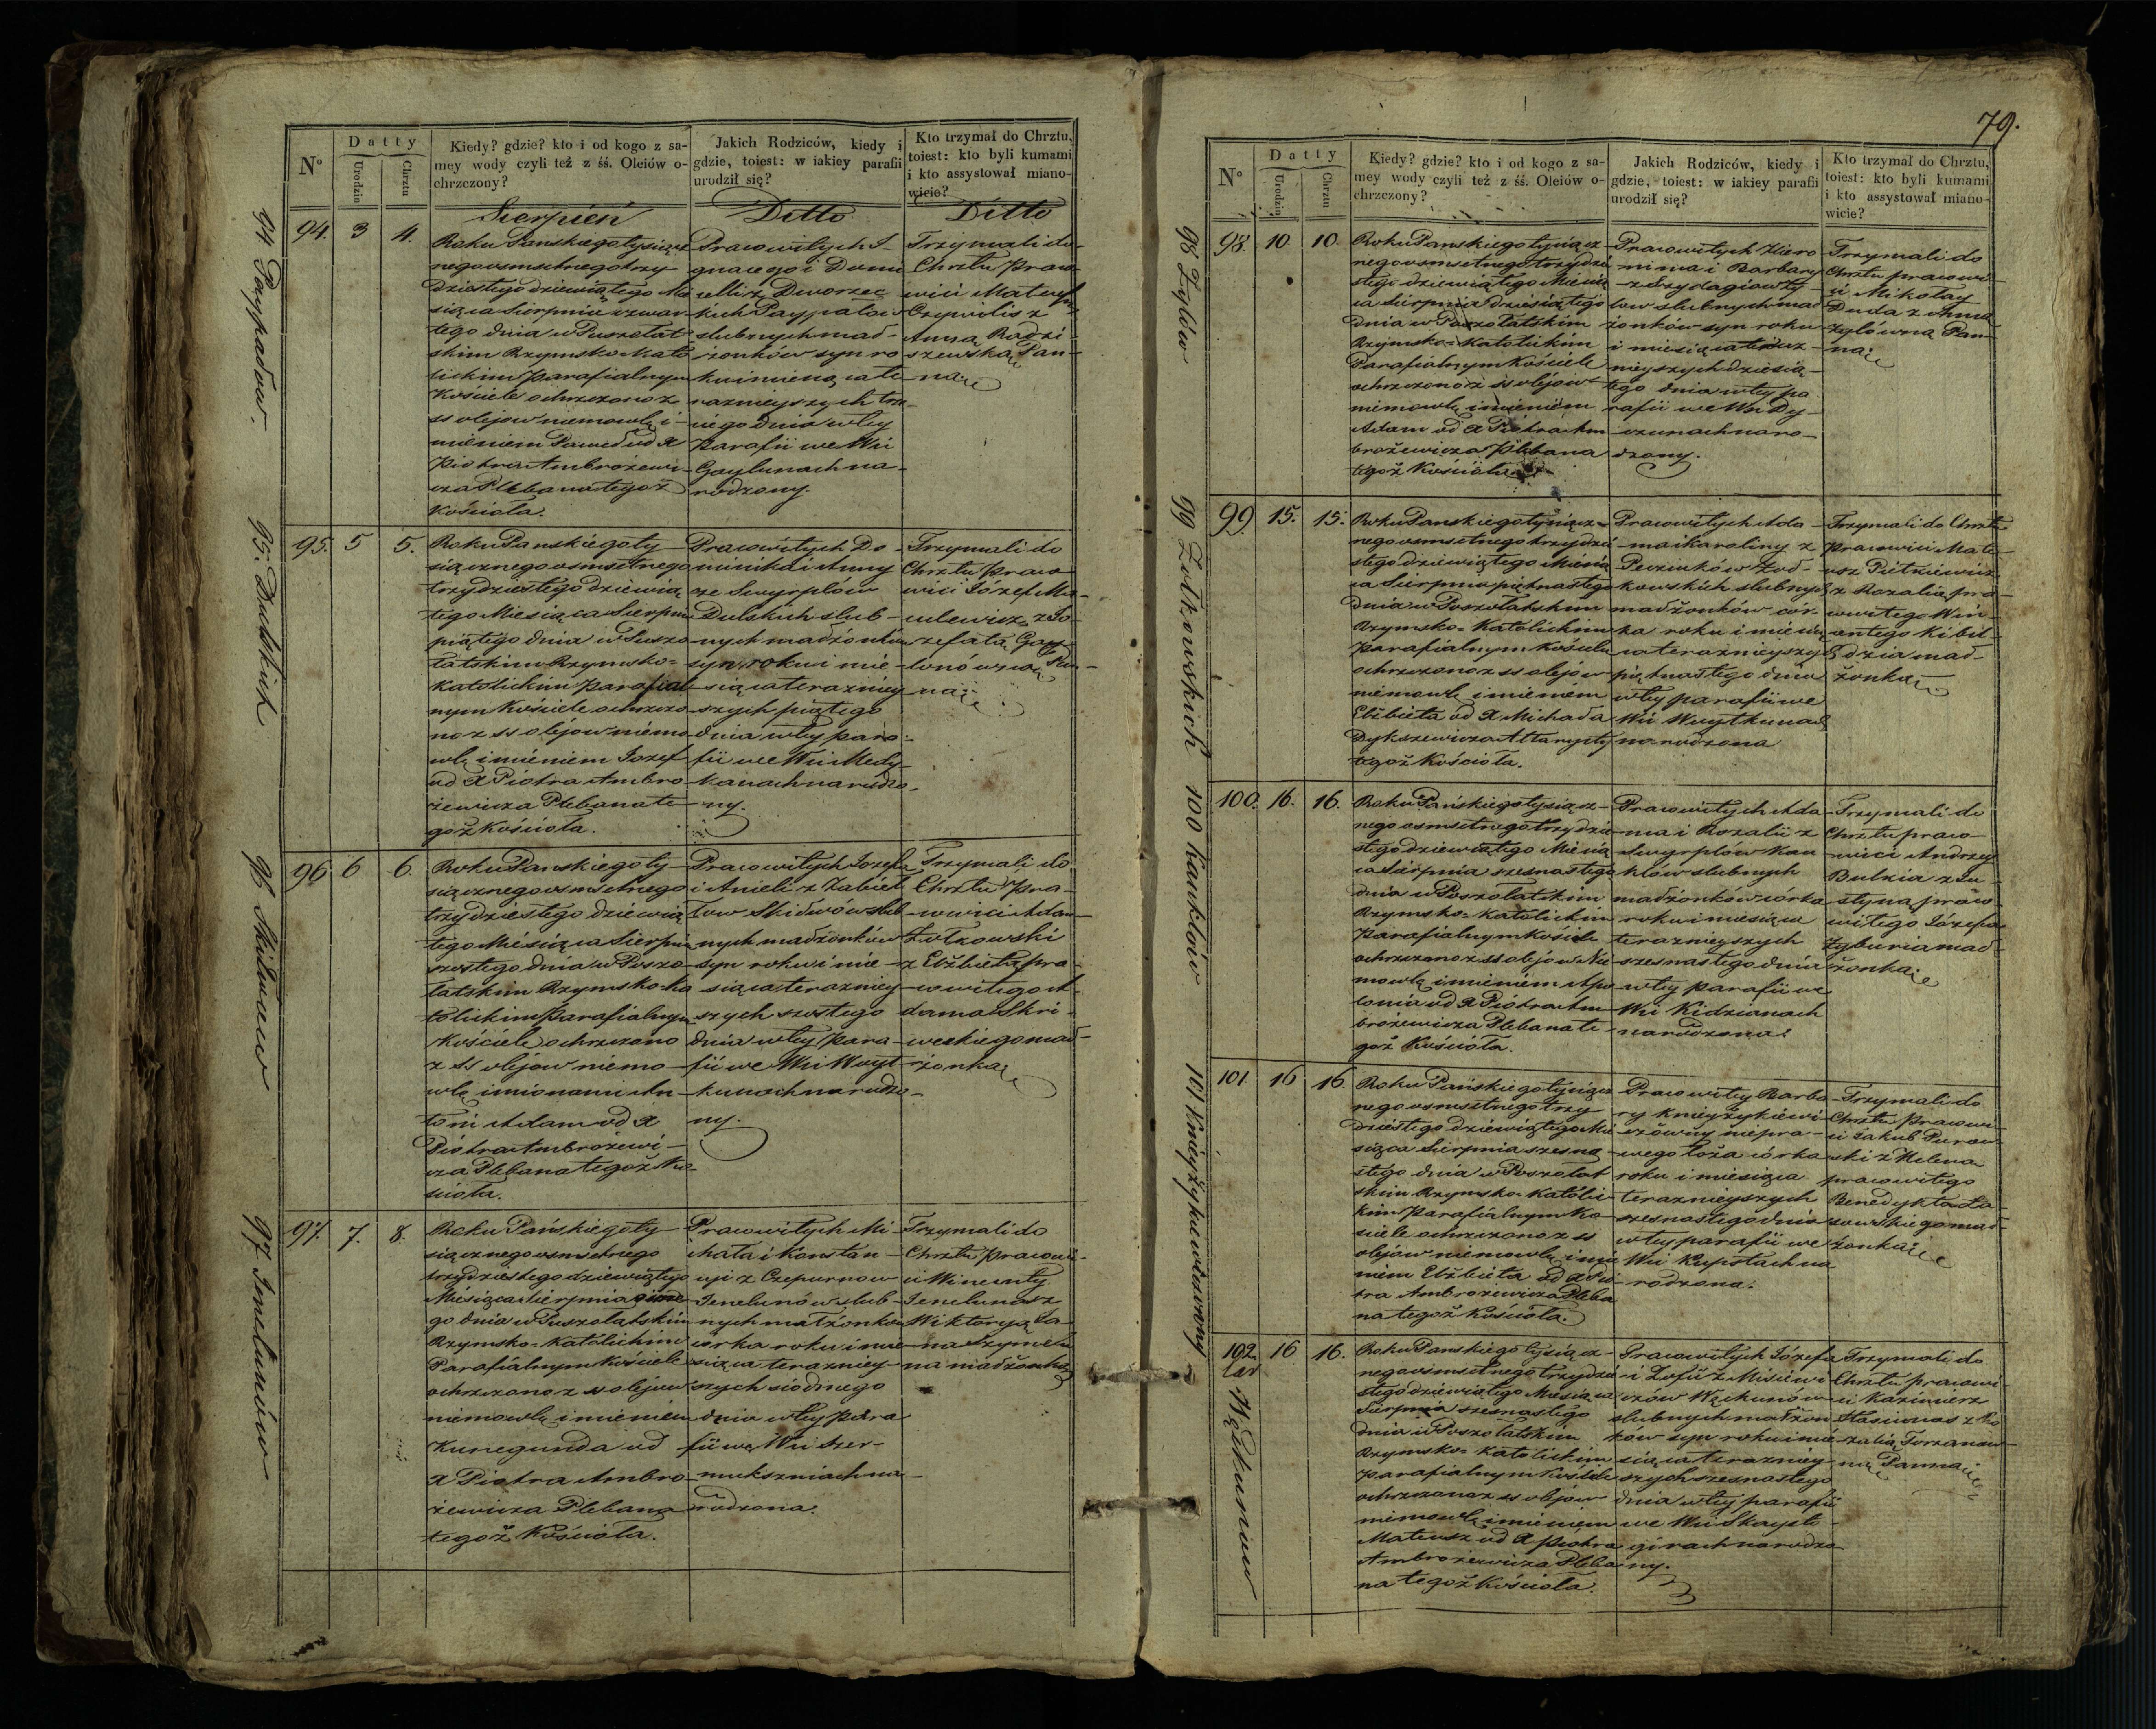 N°
Datty
Urodzin
Chrztu
Kiedy? gdzie? kto i od kogo z sa-
mey wody czyli też z śś. Oleiów o-
chrzczony?
Jakich Rodziców, kiedy i
gdzie, toiest: w iakiey parafii
urodził się?
Kto trzymał do Chrztu,
toiest: kto byli kumami
i kto assystował miano-
wicie?
Sierpień
Ditto
Ditto
94.
3
4.
Roku Panskiego tysiącz
nego osmsetnego trzy
dziestego dziewiątego Mie
siąca Sierpnia czwar
tego dnia w Puszołat
skim Rzymsko Kato
lickim Parafialnym
Kościele ochrzczono z
ss olejow niemowlę i-
mieniem Paweł od X
Piotra Ambrożewi-
cza Plebana tegoż
Kościoła.
Pracowitych I-
gnacego i Domi
celli z Dworzec
kich
slubnych mał-
żonków syn ro
ku i miesiąca te
razniejszych trze-
ciego dnia w tey
Parafii we Wsi
Gaylunach na-
rodzony.
Trzymali do
Chrztu Praco
wici Mateusz
z
Anną Radzi
szewską Pan-
ną
95.
5
5.
Roku Panskiego ty
siącznego osmsetnego
trzydziestego dziewią
tego Miesiąca Sierpnia
piątego dnia w Puszo
łatskim Rzymsko=
Katolickim Parafial
nym Kościele ochrzczo
no z ss olejow niemo
wlę imieniem Jozef
od X Piotra Ambro
żewicza Plebana te
goż Kościoła.
Pracowitych Do-
minika i Anny
ze Swyrplów
Dulskich slub-
nych małżonków
syn roku i mie
siąca terazniey
szych piątego
dnia w tey para-
fii we Wsi Medy-
kanach narodzo-
ny.
Trzymali do
Chrztu Praco
wici Józef
z Jo-
zefatą
Pan-
ną
95. Dulskich
96
6
6
Roku Panskiego ty
siącznego osmsetnego
trzydziestego dziewią
tego Miesiąca Sierpnia
szostego dnia w Puszo
łatskim Rzymsko-Ka
tolickim Parafialnym
Kościele ochrzczono
z ss olejow niemo-
wlę imionami An
toni Adam od X
Piotra Ambrożewi-
cza Plebana tegoż Ko
ścioła.
Pracowitych Jozefa
i Anieli z Zabieł
łow
nych małżonków
syn roku i mie-
siąca terazniey
szych szostego
dnia w tey Para-
fii we Wsi Woyt-
kunach narodzo-
ny.
Trzymali do
Chrztu Pra-
cowici Adam
Zołkowski
z Elżbietą pra-
cowitego A-
dama Skri-
weckiego mał-
żonką
97.
7.
8.
Roku Pańskiego ty
siącznego osmsetnego
trzydziestego dziewiątego
Miesiąca Sierpnia osme
go dnia w Puszołatskim
Rzymsko-Katolickim
Parafialnym Kościele
ochrzczono z ss olejow
niemowlę imieniem
Kunegunda od
X Piotra Ambro
żewicza Plebana
tegoż Kościoła.
Pracowitych Mi-
chała i Konstan-
cyi z Czepurnow
Jenelunów slub-
nych małżonków
córka roku i mie
siąca terazniey-
szych siodmego
dnia w tey Para
fii we Wsi
na
rodzona.
Trzymali do
Chrztu Pracowi-
ci Wincenty
Jenelunas z
Wiktoryą Ja-
na
na małżonką
97 Jenelunów
79.
N°
Datty
Urodzin
Chrztu
Kiedy? gdzie? kto i od kogo z sa-
mey wody czyli też z śś. Oleiów o-
chrzczony?
Jakich Rodziców, kiedy i
gdzie, toiest: w iakiey parafii
urodził się?
Kto trzymał do Chrztu,
toiest: kto byli kumami
i kto assystował miano-
wicie?
98 Zylów
98.
10.
10.
Roku Panskiego tysiącz
nego osmsetnego trzydzie
stego dziewiątego Miesią
ca Sierpnia dziesiątego
dnia w Poszołatskim
Rzymsko-Katolickim
Parafialnym Kościele
ochrzczono z ss olejow
niemowlę imieniem
Adam od X Piotra Am
brożewicza Plebana
tegoż Kościoła
Pracowitych Hiero
nima i Barbary
low slubnych mał
żonków syn roku
i miesiąca teraz
nieyszych dziesią-
tego dnia w tey pa
rafii we Wsi Dy-
naro-
dzony.
Trzymali do
Chrztu pracowi
ci Mikołay
Duda z Anną
Zylówną Pan-
ną
99 Zołkowskich
99.
15.
15.
Roku Panskiego tysiącz-
nego osmsetnego trzydzie
stego dziewiątego Miesią
ca Sierpnia piętnastego
dnia w Poszołatskim
Rzymsko-Katolickim
Parafialnym Kościele
ochrzczono z ss olejow
niemowlę imieniem
Elżbieta od X Michała
Dykszewicza Altarysty
tegoż Kościoła.
Pracowitych Ada-
ma i Karoliny z
Żoł-
kowskich slubnych
małżonków cór-
ka roku i miesią
ca teraznieyszych
piętnastego dnia
w tey parafii we
Wsi Woytkunach
narodzona
Trzymali do Chrztu
Pracowici Mate-
usz Pietkiewicz
z Rozalią pra-
cowitego Win
centego Kibil-
dzia mał-
żonką
100 Kanklów
100.
16.
16.
Roku Pańskiego tysiącz-
nego osmsetnego trzydzie
stego dziewiątego Miesią
ca Sierpnia szesnastego
dnia w Poszołatskim
Rzymsko-Katolickim
Parafialnym Kościele
ochrzczono z ss olejow Nie
mowlę imieniem Apo
lonia od X Piotra Am
brożewicza Plebana te
goż Kościoła.
Pracowitych Ada
ma i Rozalii z
Swyrplów Kan
klów slubnych
małżonków córka
roku i miesiąca
teraznieyszych
szesnastego dnia
w tey parafii we
Wsi Kidzianach
narodzona.
Trzymali do
Chrztu praco
wici Andrzey
z Ju
styną praco
witego Józefa
mał
żonką
101
16
16
Roku Pańskiego tysiącz
nego osmsetnego trzy
dziestego dziewiątego Mie
siąca Sierpnia szesna
stego dnia w Poszołat
skim Rzymsko-Katolic
kim Parafialnym Ko
ściele ochrzczono z ss
olejow niemowlę imie
niem Elżbieta od X Pio
tra Ambrożewicza Pleba
na tegoż Kościoła.
Pracowitey Barba
ry
niepra-
wego łoża córka
roku i miesiąca
teraznieyszych
szesnastego dnia
w tey parafii we
Wsi Kupstach na
rodzona.
Trzymali do
Chrztu Pracowi-
ci Jakub
z Helena
pracowitego
Benedykta
mał
żonką
102
16
16.
Roku Panskiego tysiącz-
nego osmsetnego trzydzie
stego dziewiątego Miesiąca
Sierpnia szesnastego
dnia w Poszołatskim
Rzymsko-Katolickim
Parafialnym Kościele
ochrzczono z ss olejow
niemowlę imieniem
Mateusz od X Piotra
Ambrożewicza Pleba
na tegoż Kościoła.
Pracowitych Józefa
i Zofii z Misiewi
czów
slubnych małżon
ków syn roku i mie
siąca terazniey
szych szesnastego
dnia w tey parafii
we Wsi Skayst-
girach narodzo
ny.
Trzymali do
Chrztu pracowi-
ci Kazimierz
Stasiunas z Ro
zalią
Panną